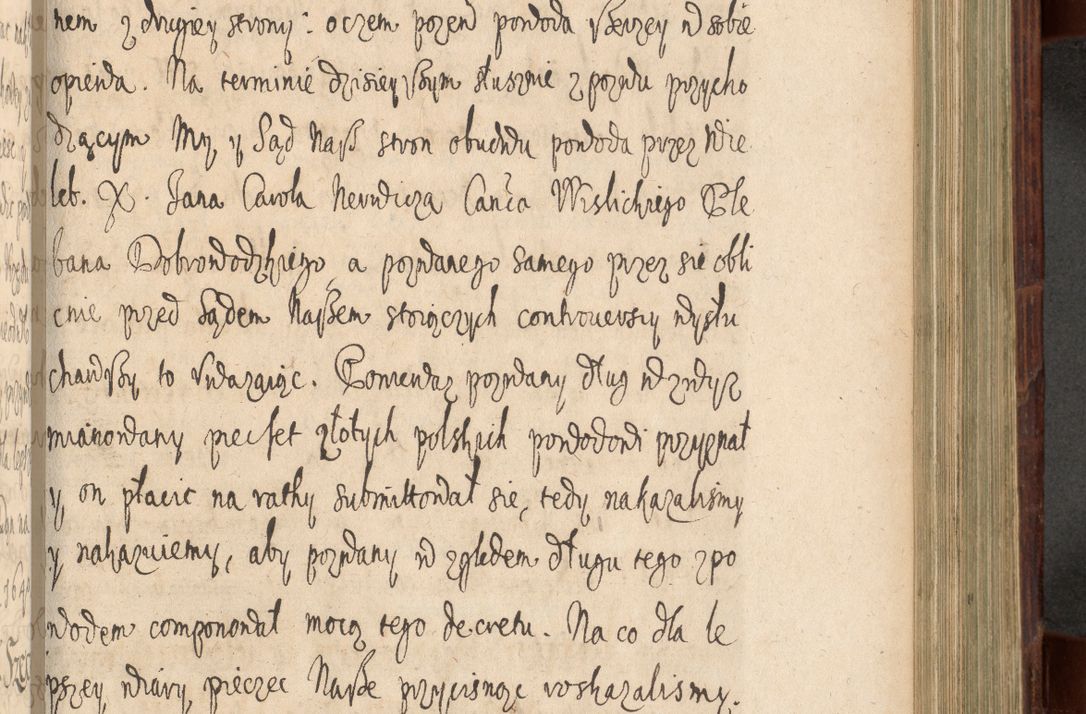 nem z drugiey strony: oczem pozew powoda szerzey w sobie
opiewa. Na terminie dzisieyszym słusznie z pozwu przycho
dzącym My, y Sąd Nasz stron obudwu powoda przez Wie
leb. X. Jana Carola Newdicza Canca Wislickiego Ple
bana Dobrowodzkiego, a pozwanego samego przez się obli
cnie przed Sądem Naszem stoiączych controuersiy wysłu
chawszy to vważaiąc. Poniewaz pozwany dług w zwysz
mianowany piecset złotych polskich powodowi przyznał
y on płacic na rathy submittował się, tedy nakazalismy
y nakazuiemy, aby pozwany w zględem długu tego z po
wodem componował mocą tego decretu. Na co dla le
pszey wiary, pieczec Nasze przycisnąc roskazalismy.